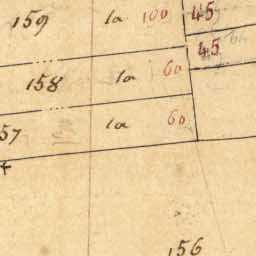 159 la 100 45
45
158 la 60
57 la 60
156